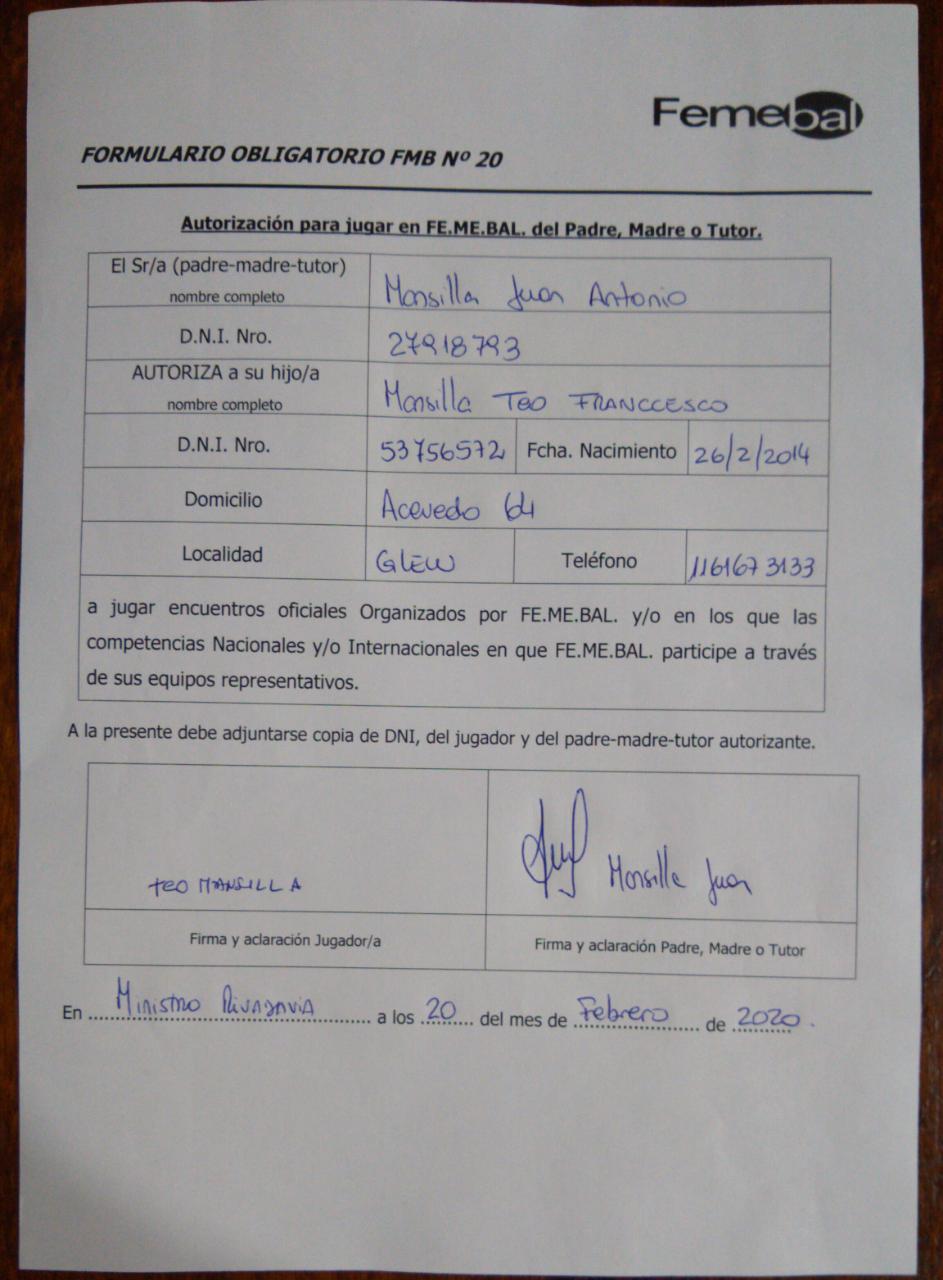 Femebal
FORMULARIO OBLIGATORIO FMB Nº 20
Autorización para jugar en FE.ME.BAL. del Padre, Madre o Tutor.
El Sr/a (padre-madre-tutor)
nombre completo
Mansilla Juan Antonio
D.N.I. Nro.
27918793
AUTORIZA a su hijo/a
nombre completo
Mansilla TEO FRANCCESCO
D.N.I. Nro.
53756572
Fcha. Nacimiento
26/2/2014
Domicilio
Acevedo 64
Localidad
GLEW
Teléfono
1161673133
a jugar encuentros oficiales Organizados por FE.ME.BAL. y/o en los que las
competencias Nacionales y/o Internacionales en que FE.ME.BAL. participe a través
de sus equipos representativos.
A la presente debe adjuntarse copia de DNI, del jugador y del padre-madre-tutor autorizante.
TEO MANSILLA
Mansilla Juan
Firma y aclaración Jugador/a
Firma y aclaración Padre, Madre o Tutor
En Ministro Rivadavia a los 20 del mes de Febrero de 2020.